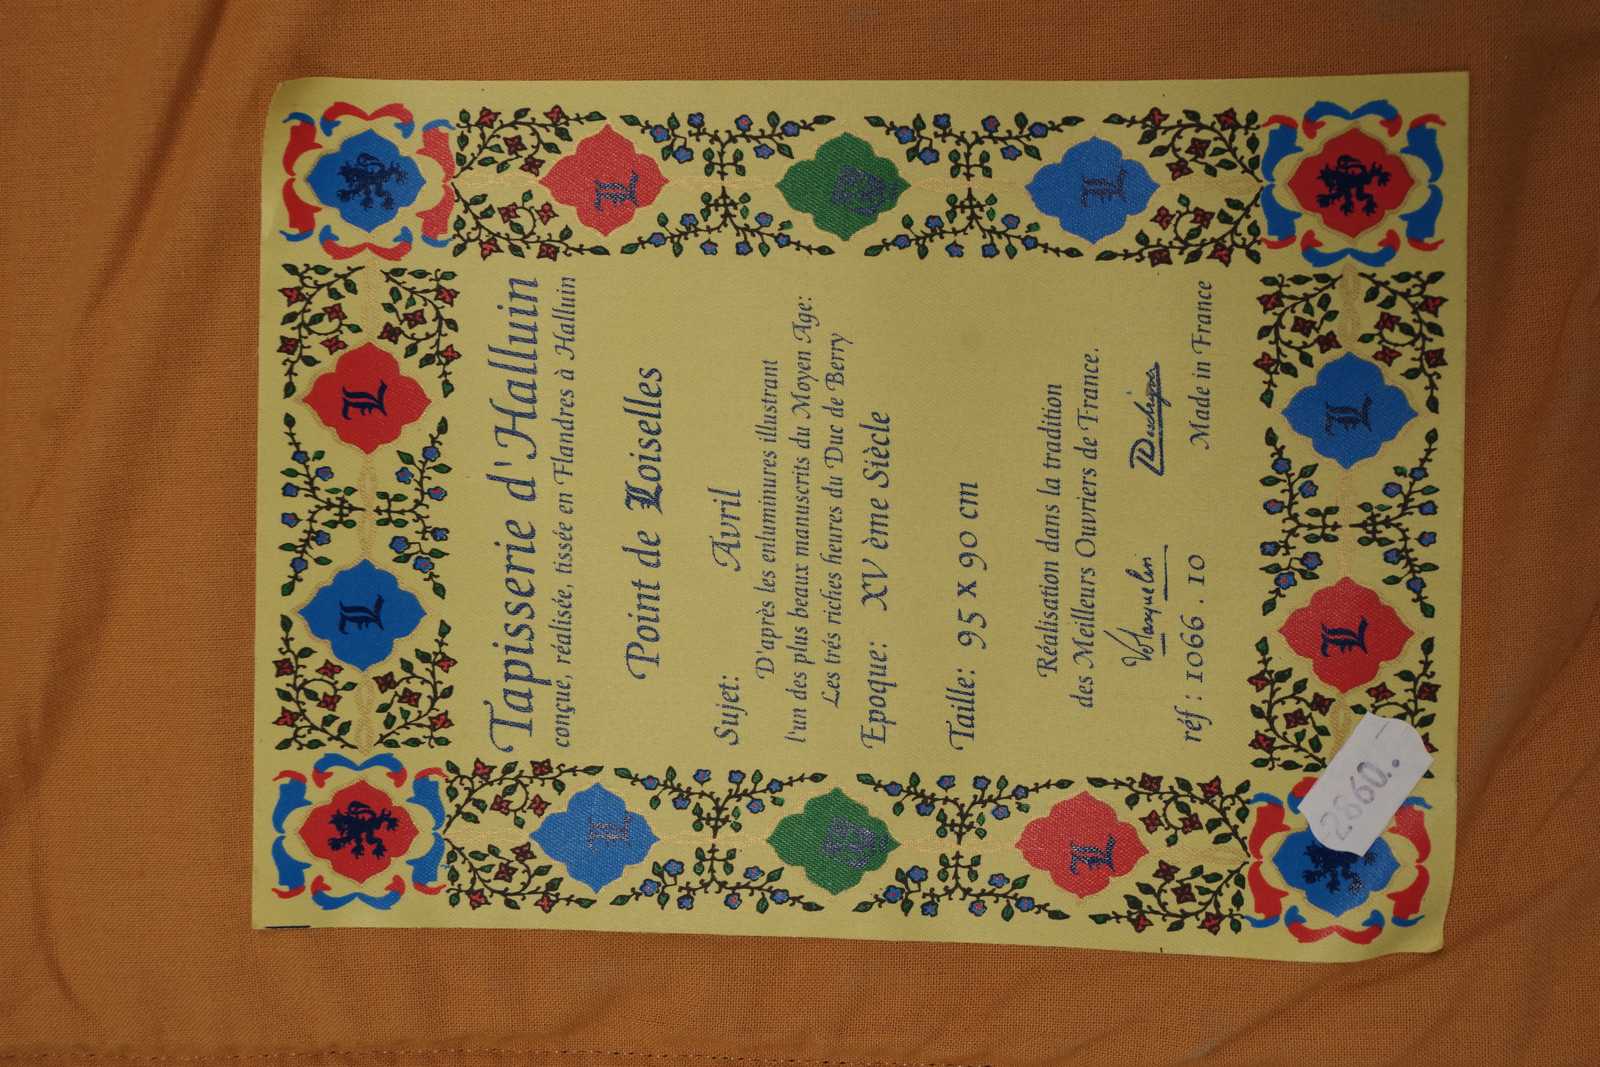 Tapisserie d'Halluin
conçue, réalisée, tissée en Flandres à Halluin
Point de Loiselles
Sujet: Avril
D'après les enluminures illustrant
l'un des plus beaux manuscrits du Moyen Age:
Les trés riches heures du Duc de Berry
Epoque: XV ème Siècle
Taille: 95 x 90 cm
Réalisation dans la tradition
des Meilleurs Ouvriers de France.
réf : 1066 . 10 Made in France
L
L
L
L
L
L
L
L
2660.-